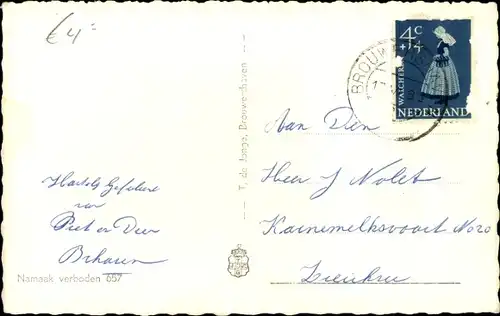 €4=
4c
+4
WALCHEREN
NEDERLAND
BROUW
T. de Jonge, Brouwershaven
Aan Den
Heer J Nolet
Karnemelksvaart No 20
Zierikzee
Hartelijk Gefeliciteerd
van
Piet en Deer
Bhaven
Namaak verboden 657